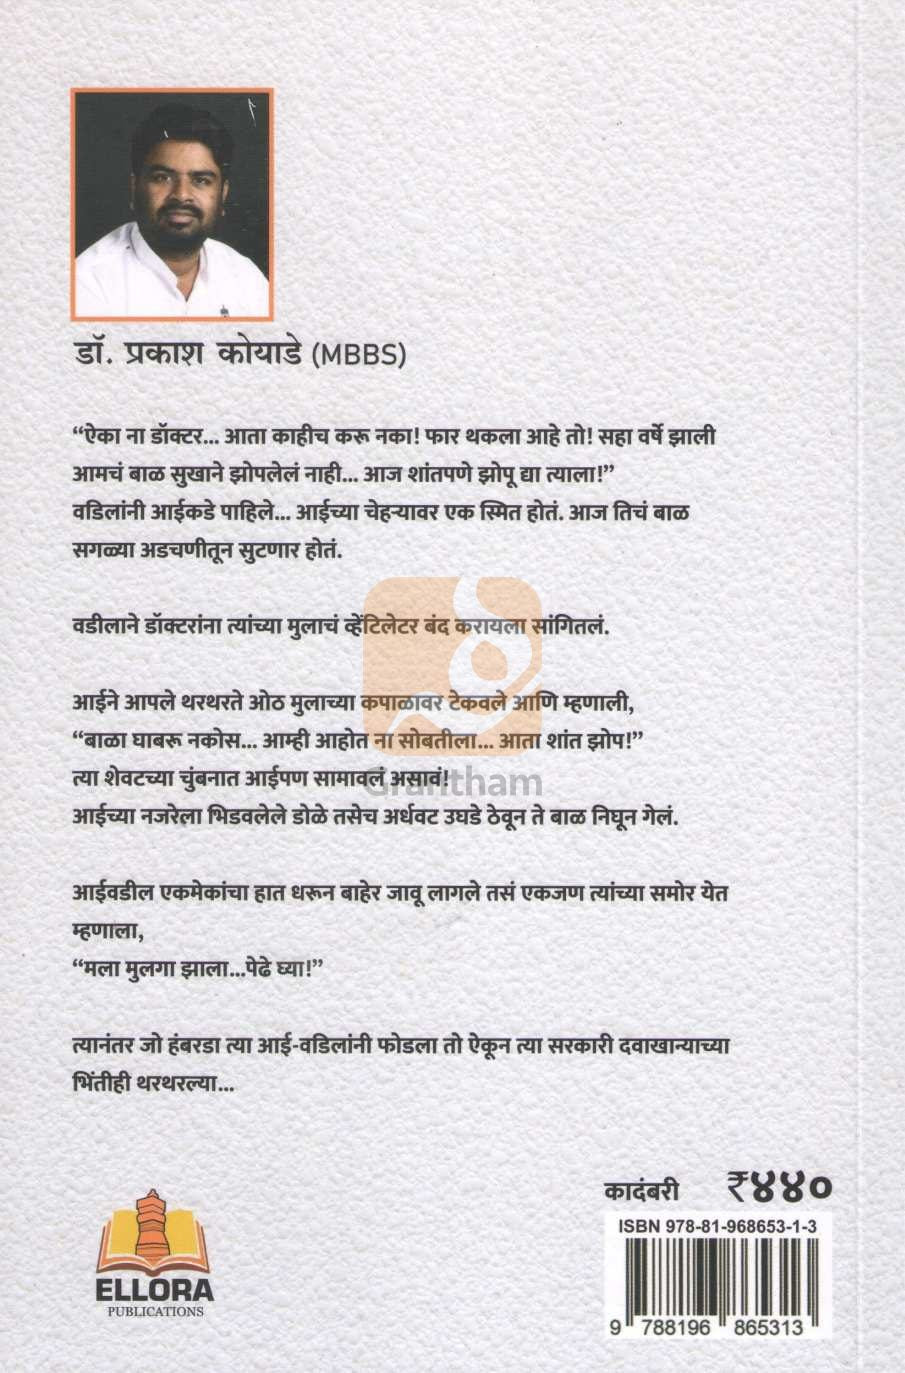 डॉ. प्रकाश कोयाडे (MBBS)
“ऐका ना डॉक्टर... आता काहीच करू नका! फार थकला आहे तो! सहा वर्षे झाली
आमचं बाळ सुखाने झोपलेलं नाही... आज शांतपणे झोपू द्या त्याला!”
वडिलांनी आईकडे पाहिले... आईच्या चेहऱ्यावर एक स्मित होतं. आज तिचं बाळ
सगळ्या अडचणीतून सुटणार होतं.
वडीलाने डॉक्टरांना त्यांच्या मुलाचं व्हेंटिलेटर बंद करायला सांगितलं.
आईने आपले थरथरते ओठ मुलाच्या कपाळावर टेकवले आणि म्हणाली,
“बाळा घाबरू नकोस... आम्ही आहोत ना सोबतीला... आता शांत झोप!”
त्या शेवटच्या चुंबनात आईपण सामावलं असावं!
Grantham
आईच्या नजरेला भिडवलेले डोळे तसेच अर्धवट उघडे ठेवून ते बाळ निघून गेलं.
आईवडील एकमेकांचा हात धरून बाहेर जावू लागले तसं एकजण त्यांच्या समोर येत
म्हणाला,
“मला मुलगा झाला...पेढे घ्या!”
त्यानंतर जो हंबरडा त्या आई-वडिलांनी फोडला तो ऐकून त्या सरकारी दवाखान्याच्या
भिंतीही थरथरल्या...
कादंबरी ₹४४०
ISBN 978-81-968653-1-3
9 788196 865313
ELLORA
PUBLICATIONS